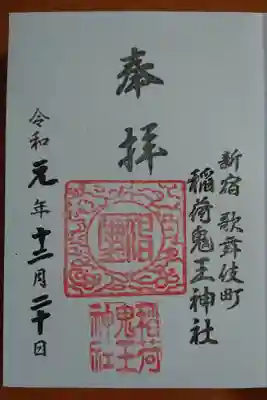 奉拝
新宿 歌舞伎町
稲荷鬼王神社
稲荷
鬼王
神社
令和元年十二月二十日